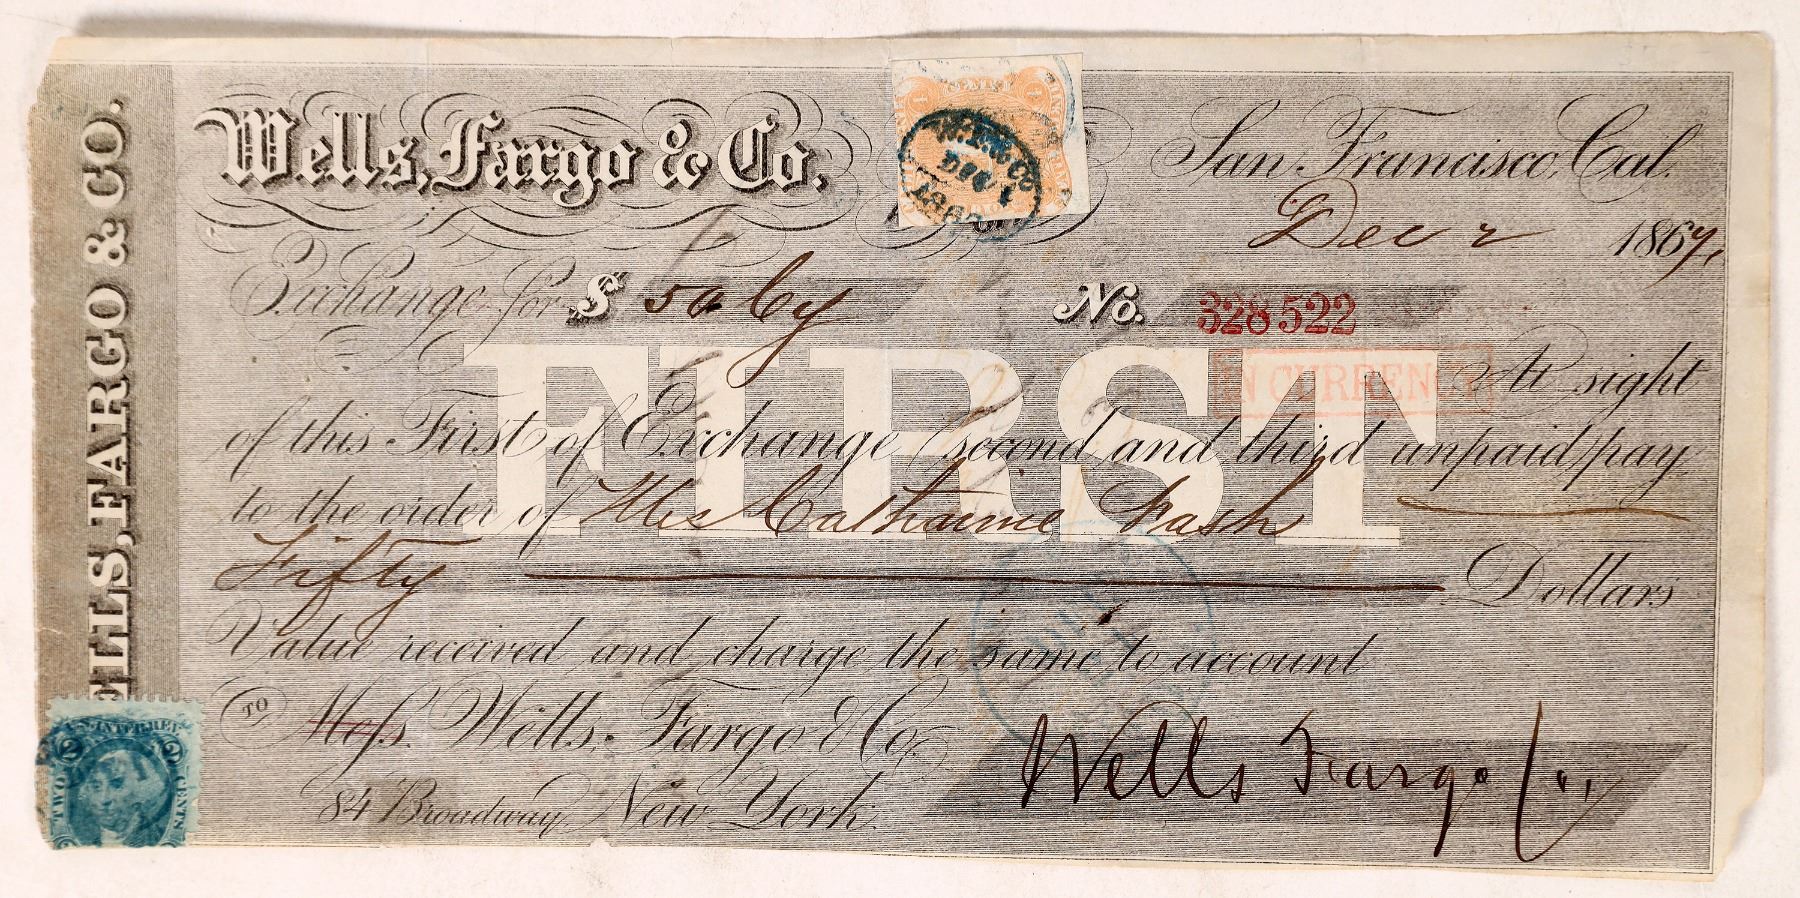 WELLS, FARGO & CO.
Wells, Fargo & Co.
San Francisco, Cal.
Dec 2 1867,
Exchange for $ 50 Cy No. 328522
IN CURRENCY
At sight
of this First of Exchange (second and third unpaid) pay
to the order of Mrs Catharine Fash
Fifty Dollars
FIRST
Value received and charge the same to account
TO Mess. Wells, Fargo & Co.
84 Broadway New York.
Wells Fargo Co
U.S. INTER. REV.
2 2
TWO CENTS
W. F. & Co